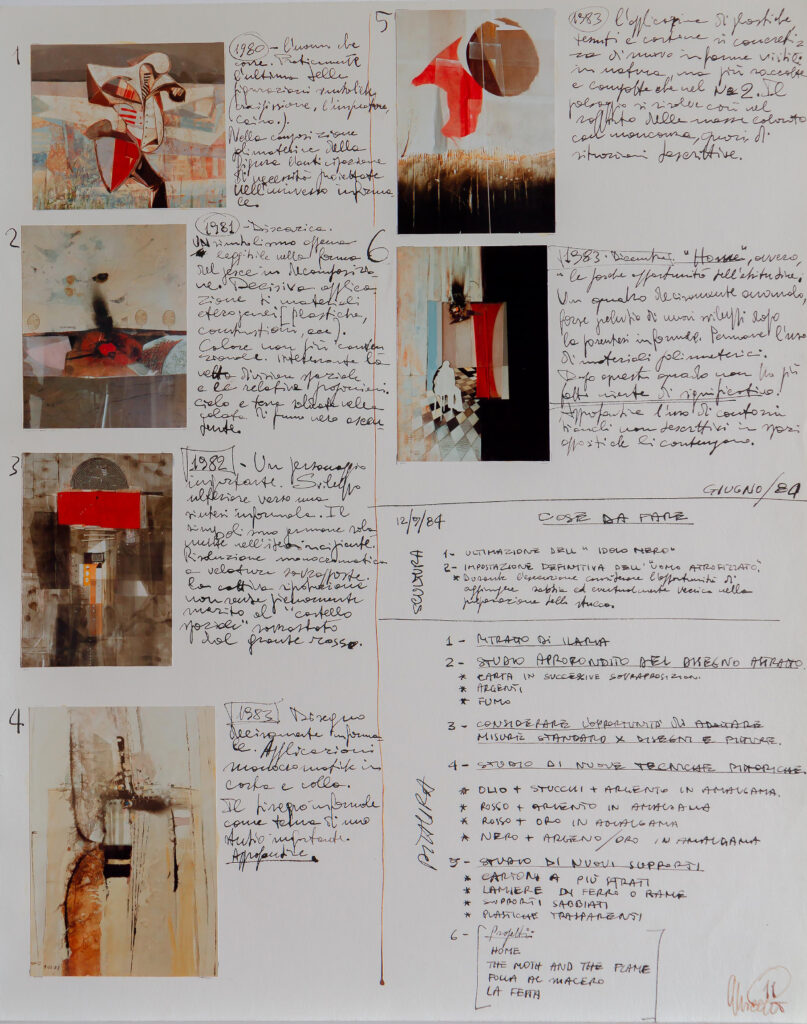 1
1980 - L'uomo che
corre. Praticamente
l'ultima delle
figurazioni simboliche
(crocifissione, l'imperatore,
caino.).
Nella composizione
polimaterica della
figura l'anticipazione
di necessità proiettate
nell'universo informa
le.
2
1981 - Discarica.
UN simbolismo appena
leggibile nella forma
del pesce in decomposizio
ne. Decisiva applica
zione di materiali
eterogenei (plastiche,
combustioni, ecc.).
Colore non più conven
zionale. Interessante la
netta divisione spaziale
e le relative proporzioni.
cielo e terra saldate nella
colata di fumo nero ascen
dente.
3
1982 - Un personaggio
importante. Sviluppo
ulteriore verso una
sintesi informale. Il
simbolismo permane sola
mente nell'idea incipiente.
Risoluzione monocromatica
a velature sovrapposte.
La cattiva riproduzione
non rende pienamente
merito al "castello
spaziale" sovrastato
dal grande rosso.
4
1983 Disegno
decisamente informa
le. Applicazioni
monocromatiche in
carta e colla.
Il disegno informale
come tema di uno
studio importante.
Approfondire.
5
1983 L'applicazione di plastiche
tessuti e cartone si concretiz
za di nuovo in forme visibili
in natura, ma più raccolte
e composte che nel No 2. Il
paesaggio si risolve così nel
rapporto delle masse colorate
con noncuranza, quasi, di
situazioni descrittive.
6
1983 - Dicembre. "Home", ovvero,
"le fosche opportunità dell'abitudine.
Un quadro decisamente anomalo,
forse preludio di nuovi sviluppi dopo
la parentesi informale. Permane l'uso
di materiali polimaterici.
Dopo questo quadro non ho più
fatto niente di significativo.
Approfondire l'uso di contorni
bianchi non descrittivi in spazi
opposti che li contengono.
GIUGNO/84
12/7/84 COSE DA FARE
SCULTURA
1- ULTIMAZIONE DELL' "IDOLO NERO"
2- IMPOSTAZIONE DEFINITIVA DELL' "UOMO ATROFIZZATO"
* Durante l'esecuzione considerare l'opportunità di
aggiungere sabbia ed eventualmente vernice nella
preparazione dello stucco.
PITTURA
1 - RITRATTO DI ILARIA
2 - STUDIO APPROFONDITO DEL DISEGNO ASTRATTO.
* CARTA IN SUCCESSIVE SOVRAPPOSIZIONI.
* ARGENTI
* FUMO
3 - CONSIDERARE L'OPPORTUNITÀ DI ADOTTARE
MISURE STANDARD X DISEGNI E PITTURE.
4 - STUDIO DI NUOVE TECNICHE PITTORICHE.
* OLIO + STUCCHI + ARGENTO IN AMALGAMA.
* ROSSO + ARGENTO IN AMALGAMA
* ROSSO + ORO IN AMALGAMA
* NERO + ARGENTO/ORO IN AMALGAMA
5 - STUDIO DI NUOVI SUPPORTI
* CARTONI A PIÙ STRATI
* LAMIERE DI FERRO O RAME
* SUPPORTI SABBIATI
* PLASTICHE TRASPARENTI
6 - Progetti:
HOME
THE MOTH AND THE FLAME
FOLLA AL MACERO
LA FESTA
11